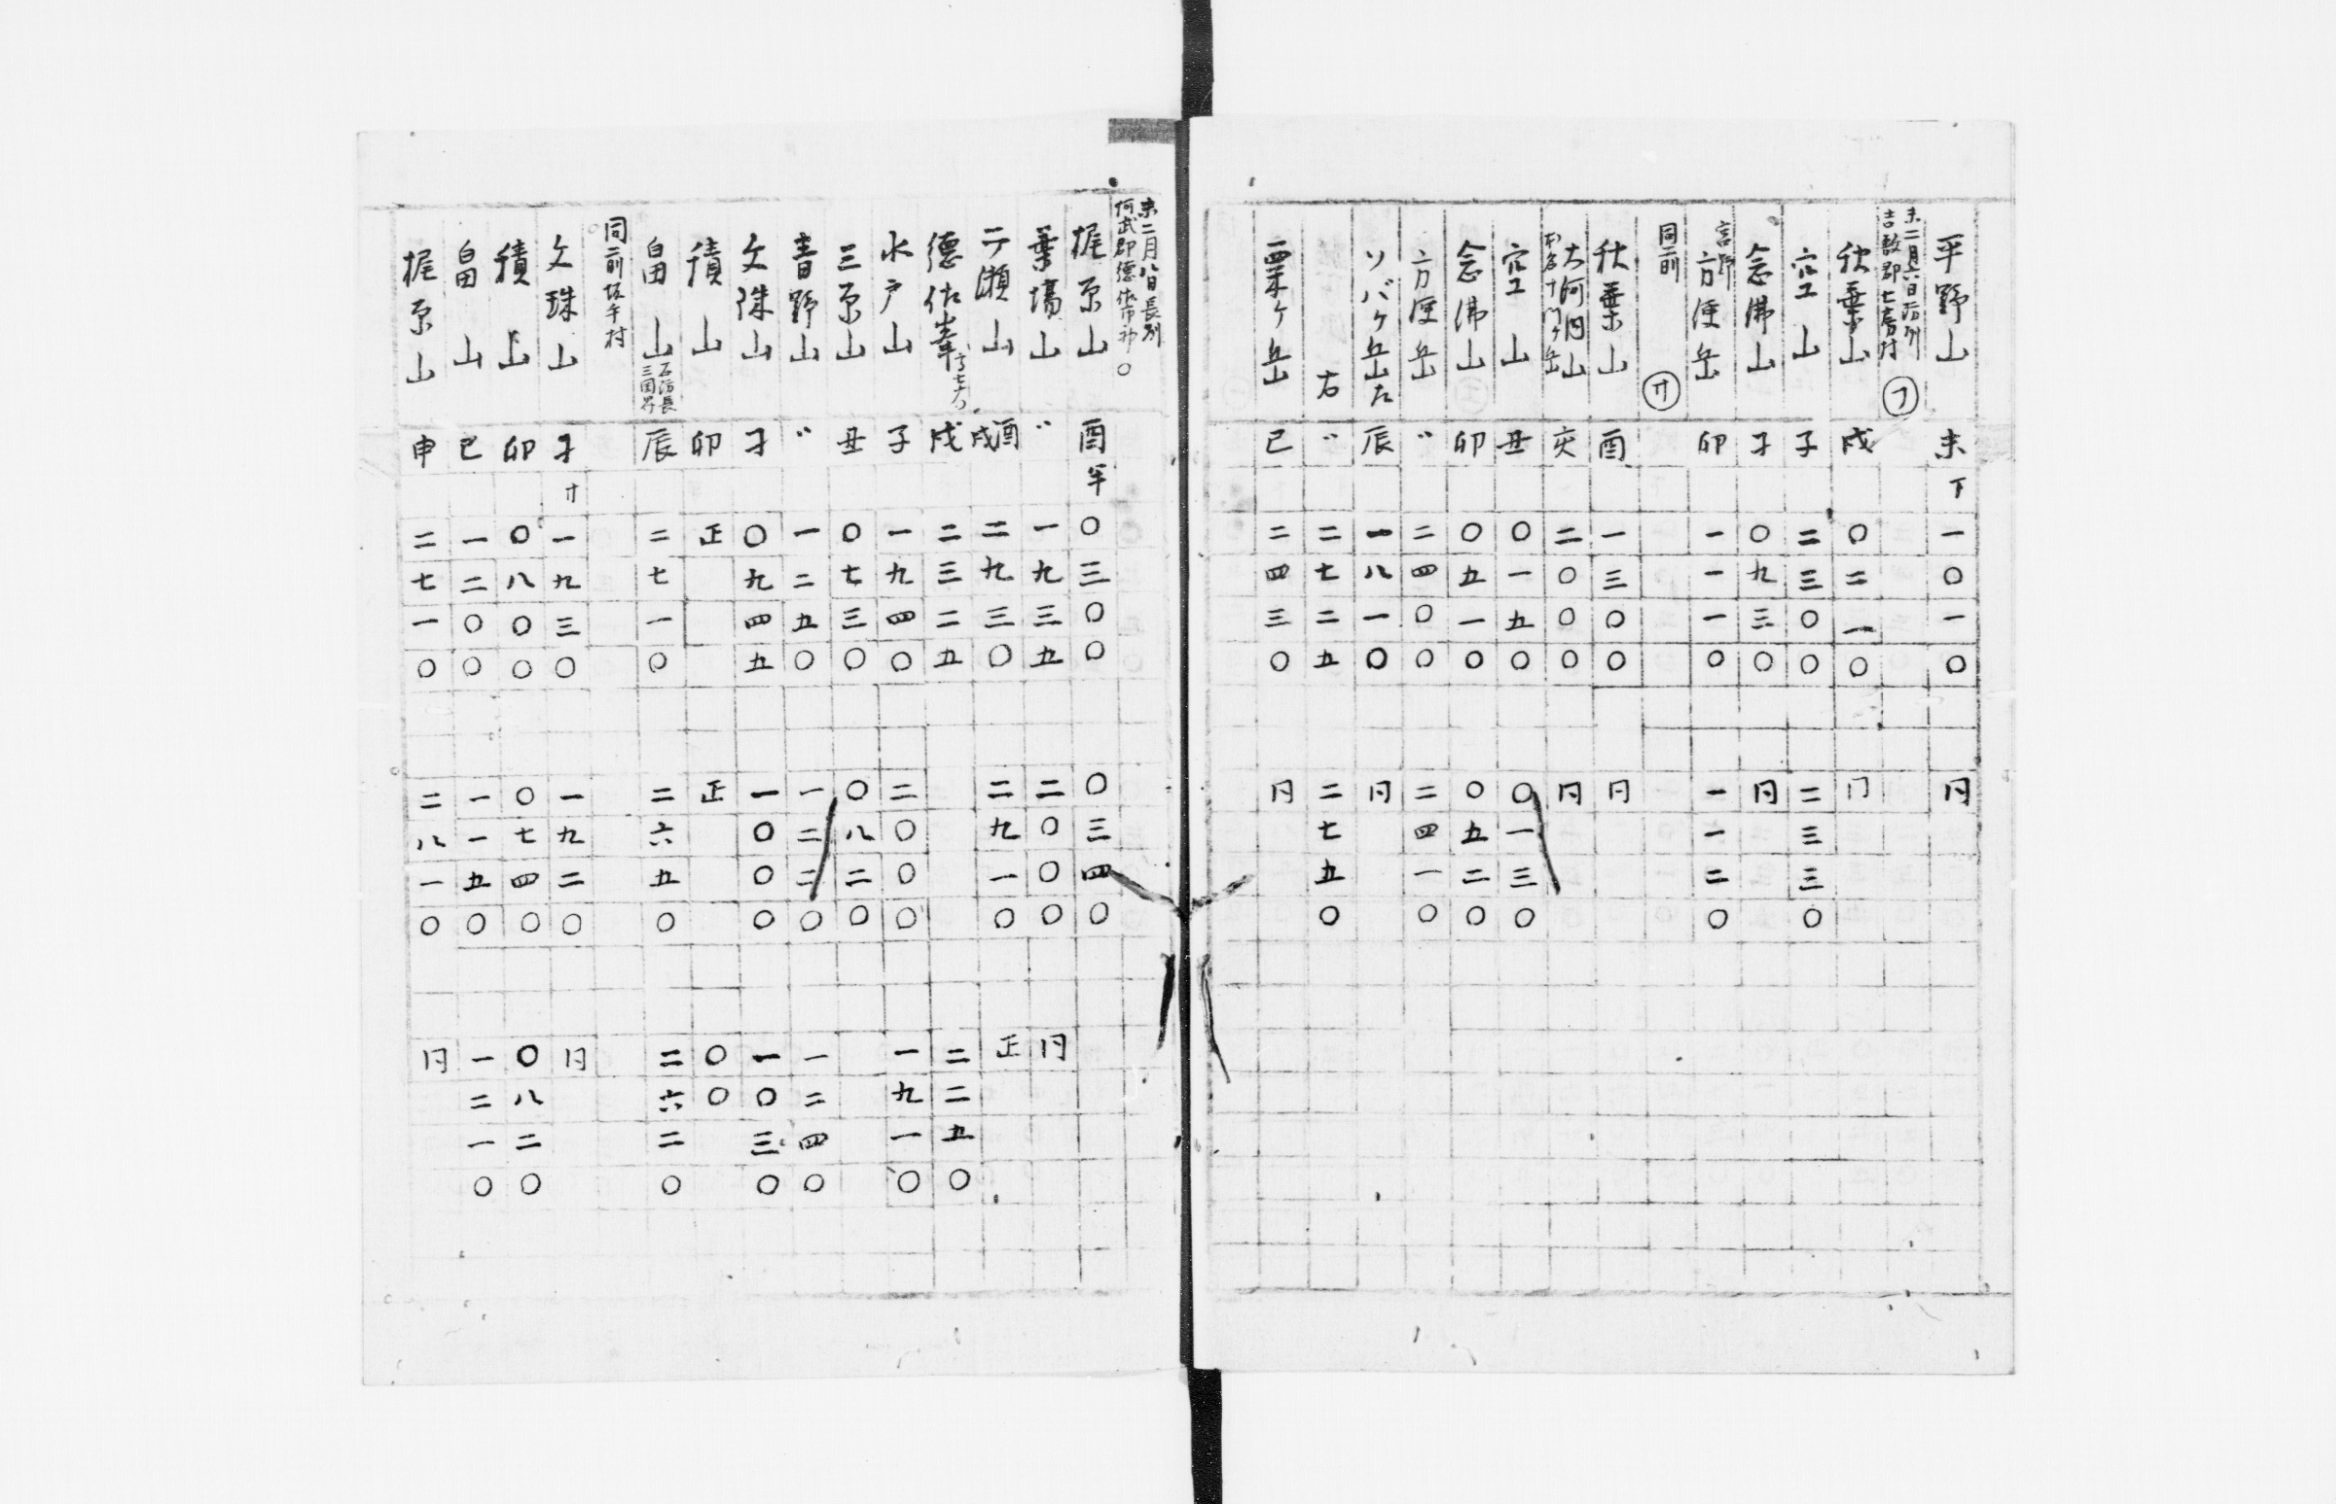 平野山 未 下 一〇一〇 同
未二月六日石州
吉敷郡七房村 ㋫
秋葉山 戌 〇二一〇 同
空山 子 二三〇〇 二三三〇
念佛山 子 〇九三〇 同
宮野
方便岳 卯 一一一〇 一一二〇
同前 ㋚
秋葉山 酉 一三〇〇 同
大河内山 亥 二〇〇〇 同
空山 丑 〇一五〇 〇一三〇
念佛山 卯 〇五一〇 〇五二〇
方便岳 〃 二四〇〇 二四一〇
ソバケ岳左 辰 一八一〇 同
右 〃 二七二五 二七五〇
粟ケ岳 巳 二四三〇 同
未二月八日長州
阿武郡德佐市 〇
梶原山 酉 半 〇三〇〇 〇三四〇
葉場山 〃 一九三五 二〇〇〇 同
二ノ瀬山 酉戌 二九三〇 二九一〇 正
德佐峯 戌 二三二五 二二五〇
水戸山 子 一九四〇 二〇〇〇 一九一〇
三原山 丑 〇七三〇 〇八二〇
吉野山 〃 一二五〇 一二二〇 一二四〇
文殊山 子 〇九四五 一〇〇〇 一〇三〇
積山 卯 正 正 〇〇
畠山 石防長
三国界 辰 二七一〇 二六五〇 二六二〇
同前坂手村
文珠山 子 サ 一九三〇 一九二〇 同
積山 卯 〇八〇〇 〇七四〇 〇八二〇
畠山 巳 一二〇〇 一一五〇 一二一〇
梶原山 申 二七一〇 二八一〇 同